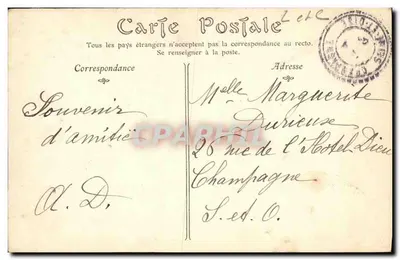 L et C
Carte Postale
Tous les pays étrangers n'acceptent pas la correspondance au recto.
Se renseigner à la poste.
Correspondance
Adresse
Souvenir
d'amitié
A. D.
Melle Marguerite
Durieuse
26 rue de l'Hotel-Dieu
Champagne
S. et O.
CPARAMA